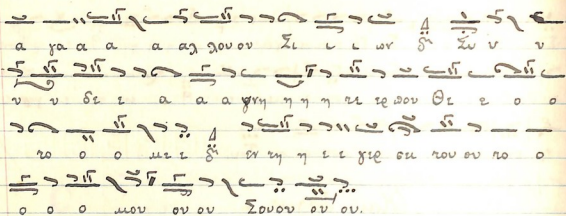 α γα α α α αλ λου ου Σι ι ι ων δι Συ υ υ
υ υ δε ε α α α γνη η η η τε ερ που Θε ε ο ο
το ο ο με ε δι εν τη η ε ε γερ σει του ου το ο
ο ο ο μου ου ου Σου ου ου ου.